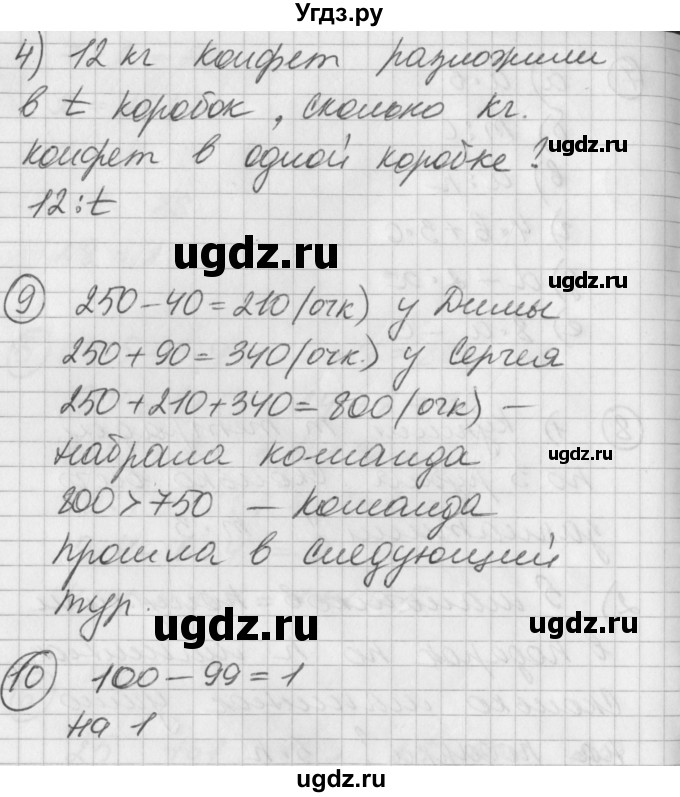 Угдз.ру
4) 12 кг конфет разложили
в t коробок, сколько кг.
конфет в одной коробке?
ugdz.ru
12:t
ugdz.ru
ugdz.ru
9 250-40=210(очк) у Димы
250+90=340(очк.) у Сергея
250+210+340=800(очк) —
набрала команда
ugdz.ru
800>750 — команда
прошла в следующий
тур.
ugdz.ru
ugdz.ru
10 100-99=1
на 1
ugdz.ru